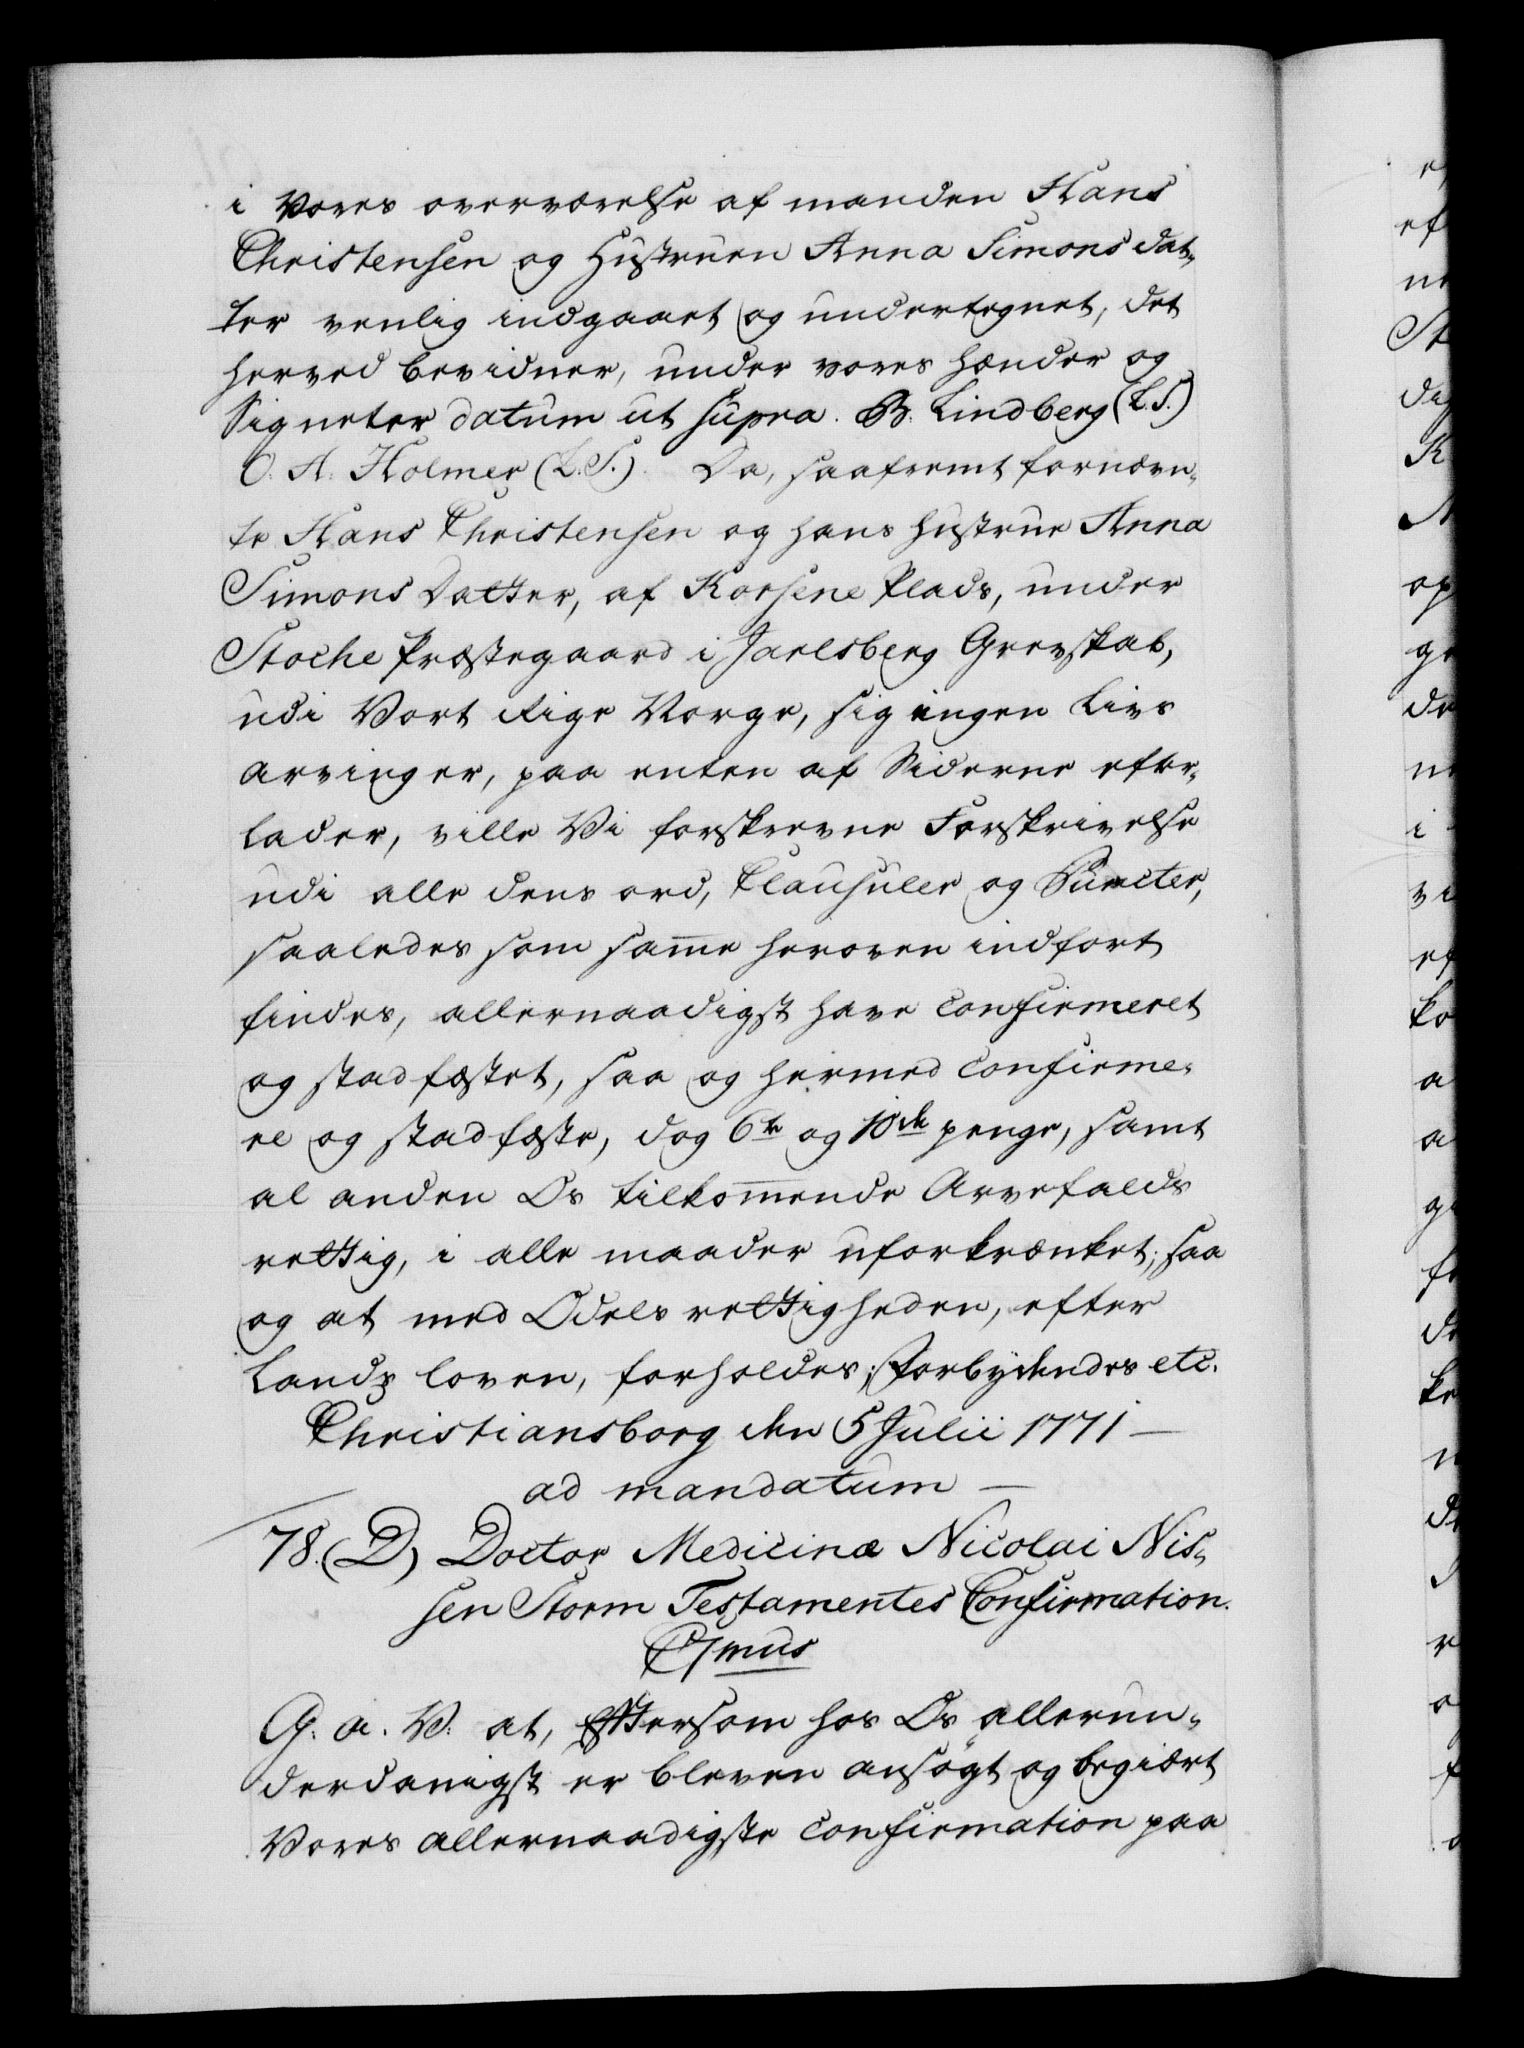 i Vores overværelse af manden Hans
Christensen og Hustruen Anna Simons dat-
ter venlig indgaaet og undertegnet, det
herved bevidner, under vores hænder og
Signeter datum ut supra. B. Lindberg (L.S.)
O. A. Holmer (L.S.). Da, saafremt fornævn-
te Hans Christensen og hans Hustrue Anna
Simons Datter, af Korsene Plads, under
Stoche Præstegaard i Jarlsberg Grevskab,
udi Vort Rige Norge, sig ingen Livs
arvinger, paa enten af Siderne efter-
lader, ville Vi forskrevne Forskrivelse
udi alle dens ord, Clausuler og Puncter,
saaledes som samme heroven indført
findes, allernaadigst have confirmeret
og stadfæstet, saa og hermed confirme-
re og stadfæste, dog 6te og 10de penge, samt
al anden Os tilkommende Arvefalds
rettig, i alle maader uforkrænket; saa
og at med Odels rettigheden, efter
Lands loven, forholdes; Forbydendes etc.
Christiansborg den 5 Julii 1771 —
ad mandatum —
78. (D) Doctor Medicinæ Nicolai Nis-
sen Storm Testamentes Confirmation.
C7mus
G. a. V: at, Eftersom hos Os allerun-
derdanigst er bleven ansøgt og begiært
Vores allernaadigste confirmation paa